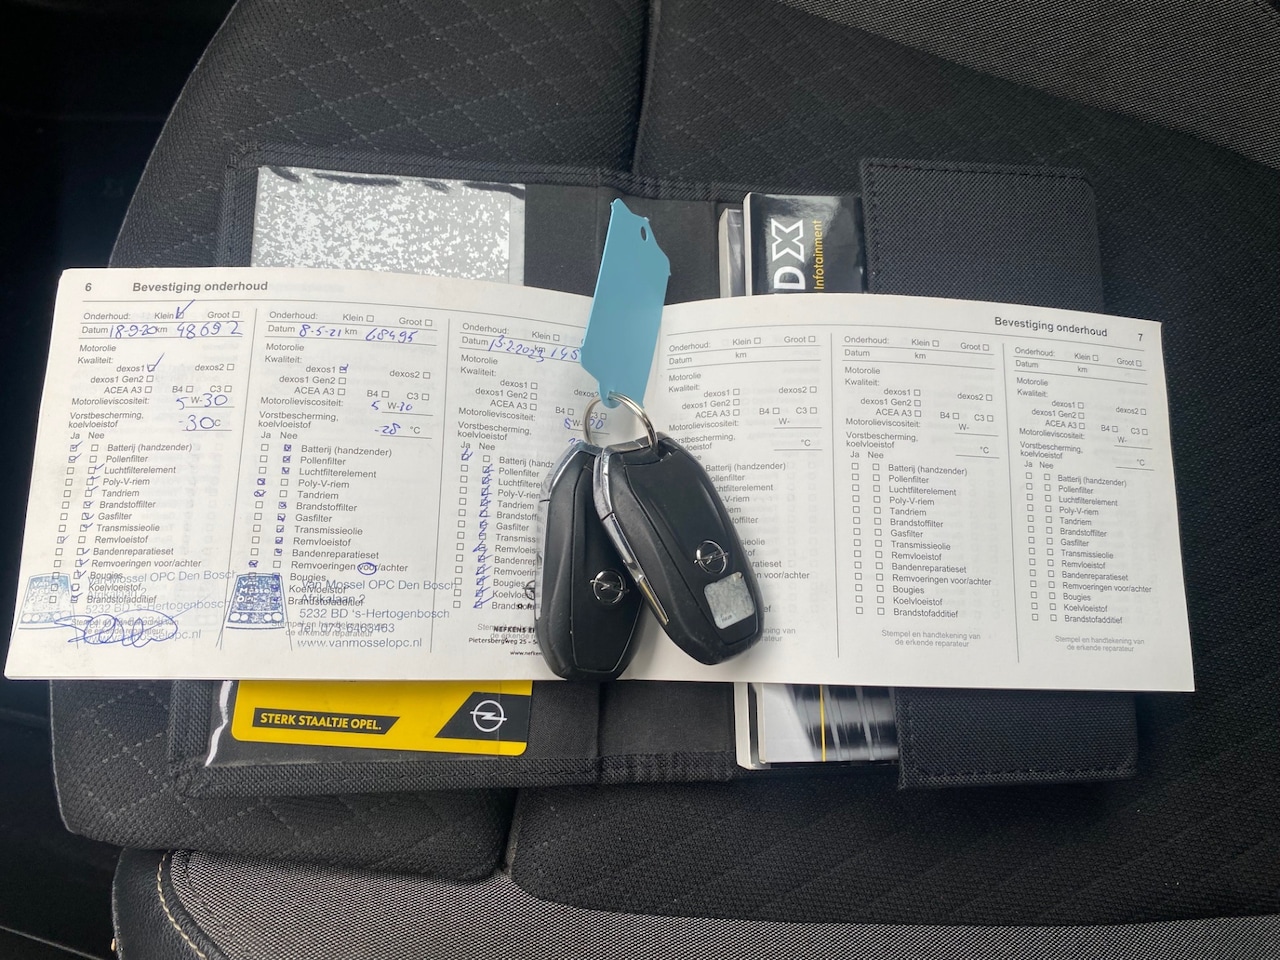 DX
Infotainment
6 Bevestiging onderhoud
Onderhoud: Klein Groot
Datum 18-9-20 km 48692
Motorolie
Kwaliteit:
dexos1 dexos2
dexos1 Gen2
ACEA A3 B4 C3
Motorolieviscositeit: 5 W-30
Vorstbescherming,
koelvloeistof -30 C
Ja Nee
Batterij (handzender)
Pollenfilter
Luchtfilterelement
Poly-V-riem
Tandriem
Brandstoffilter
Gasfilter
Transmissieolie
Remvloeistof
Bandenreparatieset
Remvoeringen voor/achter
Bougies
Koelvloeistof
Brandstofadditief
Van Mossel OPC Den Bosch
5232 BD 's-Hertogenbosch
Onderhoud: Klein Groot
Datum 8-5-21 km 68495
Motorolie
Kwaliteit:
dexos1 dexos2
dexos1 Gen2
ACEA A3 B4 C3
Motorolieviscositeit: 5 W-30
Vorstbescherming,
koelvloeistof -28 °C
Ja Nee
Batterij (handzender)
Pollenfilter
Luchtfilterelement
Poly-V-riem
Tandriem
Brandstoffilter
Gasfilter
Transmissieolie
Remvloeistof
Bandenreparatieset
Remvoeringen voor/achter
Bougies
Koelvloeistof
Brandstofadditief
Van Mossel OPC Den Bosch
5232 BD 's-Hertogenbosch
www.vanmosselopc.nl
Onderhoud: Klein
Datum km
Motorolie
Kwaliteit:
dexos1
dexos1 Gen2
ACEA A3 C3
Motorolieviscositeit:
Vorstbescherming,
koelvloeistof
Ja Nee
Batterij (han
Pollenfilter
Luchtfiltere
Poly-V-rien
Tandriem
Brandstoff
Gasfilter
Transmiss
Remvloeis
Bandenre
Remvoeri
Bougies
Koelvloei
Brands
NEFKENS
Pietersbergweg 25 -
Bevestiging onderhoud 7
Onderhoud: Klein Groot
Datum km
Motorolie
Kwaliteit:
dexos1 dexos2
dexos1 Gen2
ACEA A3 B4 C3
Motorolieviscositeit: W-
Vorstbescherming,
koelvloeistof °C
Nee
Batterij (handzender)
Pollenfilter
Luchtfilterelement
Poly-V-riem
Tandriem
Brandstoffilter
Gasfilter
Transmissieolie
Remvloeistof
Bandenreparatieset
Remvoeringen voor/achter
Bougies
Koelvloeistof
Brandstofadditief
Stempel en handtekening van
de erkende reparateur
Onderhoud: Klein Groot
Datum km
Motorolie
Kwaliteit:
dexos1 dexos2
dexos1 Gen2
ACEA A3 B4 C3
Motorolieviscositeit: W-
Vorstbescherming,
koelvloeistof °C
Ja Nee
Batterij (handzender)
Pollenfilter
Luchtfilterelement
Poly-V-riem
Tandriem
Brandstoffilter
Gasfilter
Transmissieolie
Remvloeistof
Bandenreparatieset
Remvoeringen voor/achter
Bougies
Koelvloeistof
Brandstofadditief
Stempel en handtekening van
de erkende reparateur
Onderhoud: Klein Groot
Datum km
Motorolie
Kwaliteit:
dexos1 dexos2
dexos1 Gen2
ACEA A3 B4 C3
Motorolieviscositeit: W-
Vorstbescherming,
koelvloeistof °C
Ja Nee
Batterij (handzender)
Pollenfilter
Luchtfilterelement
Poly-V-riem
Tandriem
Brandstoffilter
Gasfilter
Transmissieolie
Remvloeistof
Bandenreparatieset
Remvoeringen voor/achter
Bougies
Koelvloeistof
Brandstofadditief
Stempel en handtekening van
de erkende reparateur
STERK STAALTJE OPEL.